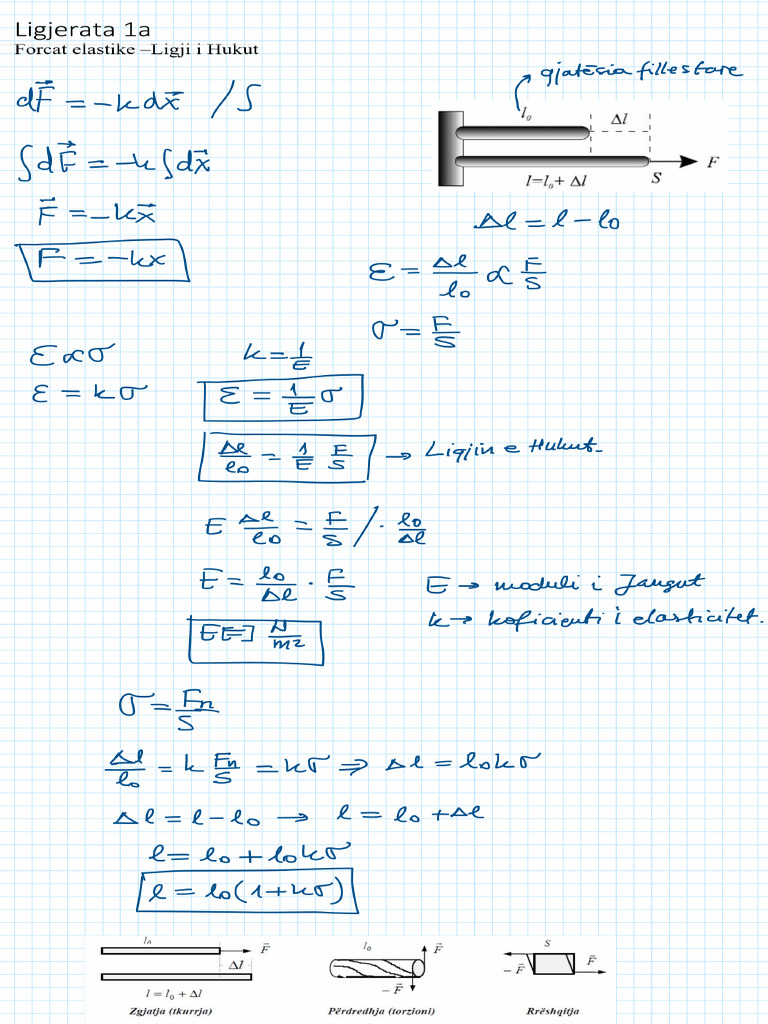 Ligjerata 1a
Forcat elastike –Ligji i Hukut
gjatësia fillestare
dF⃗ = -k dx⃗ / ∫
l₀
Δl
∫dF⃗ = -k∫dx⃗
F
l=l₀+ Δl
S
F⃗ = -kx⃗
Δl = l - l₀
F = -kx
ε = Δl/l₀ ∝ F/S
σ = F/S
ε ∝ σ
k = 1/E
ε = kσ
ε = 1/E σ
Δl/l₀ = 1/E F/S → Ligjin e Hukut-
E Δl/l₀ = F/S / · l₀/Δl
E = l₀/Δl · F/S
E → moduli i Jangut
E[=] N/m2
k → koficienti i elasticitet.
σ = Fn/S
Δl/l₀ = k Fn/S = kσ ⇒ Δl = l₀kσ
Δl = l - l₀ → l = l₀ + Δl
l = l₀ + l₀kσ
l = l₀(1+kσ)
l₀
F⃗
Δl
l = l₀ + Δl
Zgjatja (tkurrja)
l₀
F⃗
-F⃗
Përdredhja (torzioni)
S
-F⃗
F⃗
Rrëshqitja